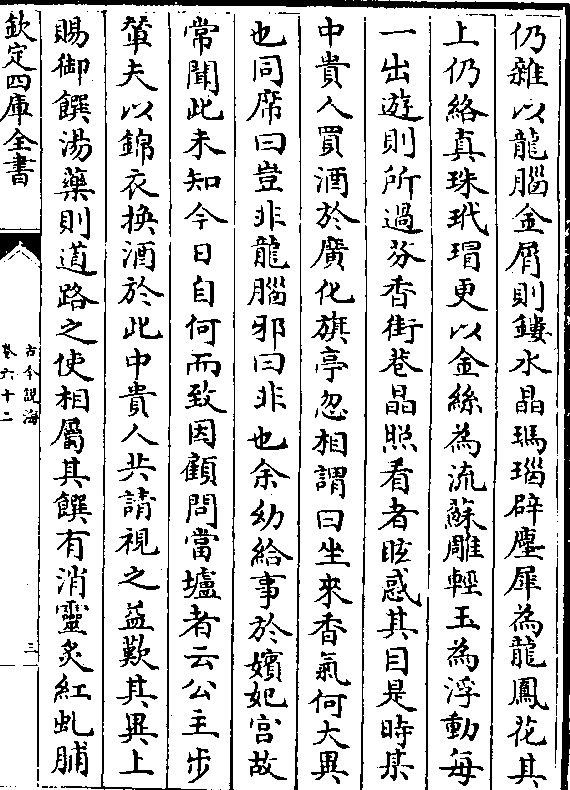 仍雜以龍腦金屑則鏤水晶瑪瑙辟塵犀為龍鳳花其
上仍絡真珠玳瑁更以金絲為流蘇雕輕玉為浮動每
一出遊則所過芬香街巷晶照看者眩惑其目是時某
中貴人買酒於廣化旗亭忽相謂曰坐來香氣何大異
也同席曰豈非龍腦邪曰非也余幼給事於嬪妃宫故
常聞此未知今日自何而致因顧問當壚者云公主步
輦夫以錦衣換酒於此中貴人共請視之益歎其異上
賜御饌湯藥則道路之使相屬其饌有消靈炙紅虬脯
欽定四庫全書
古今說海
卷六十二
三